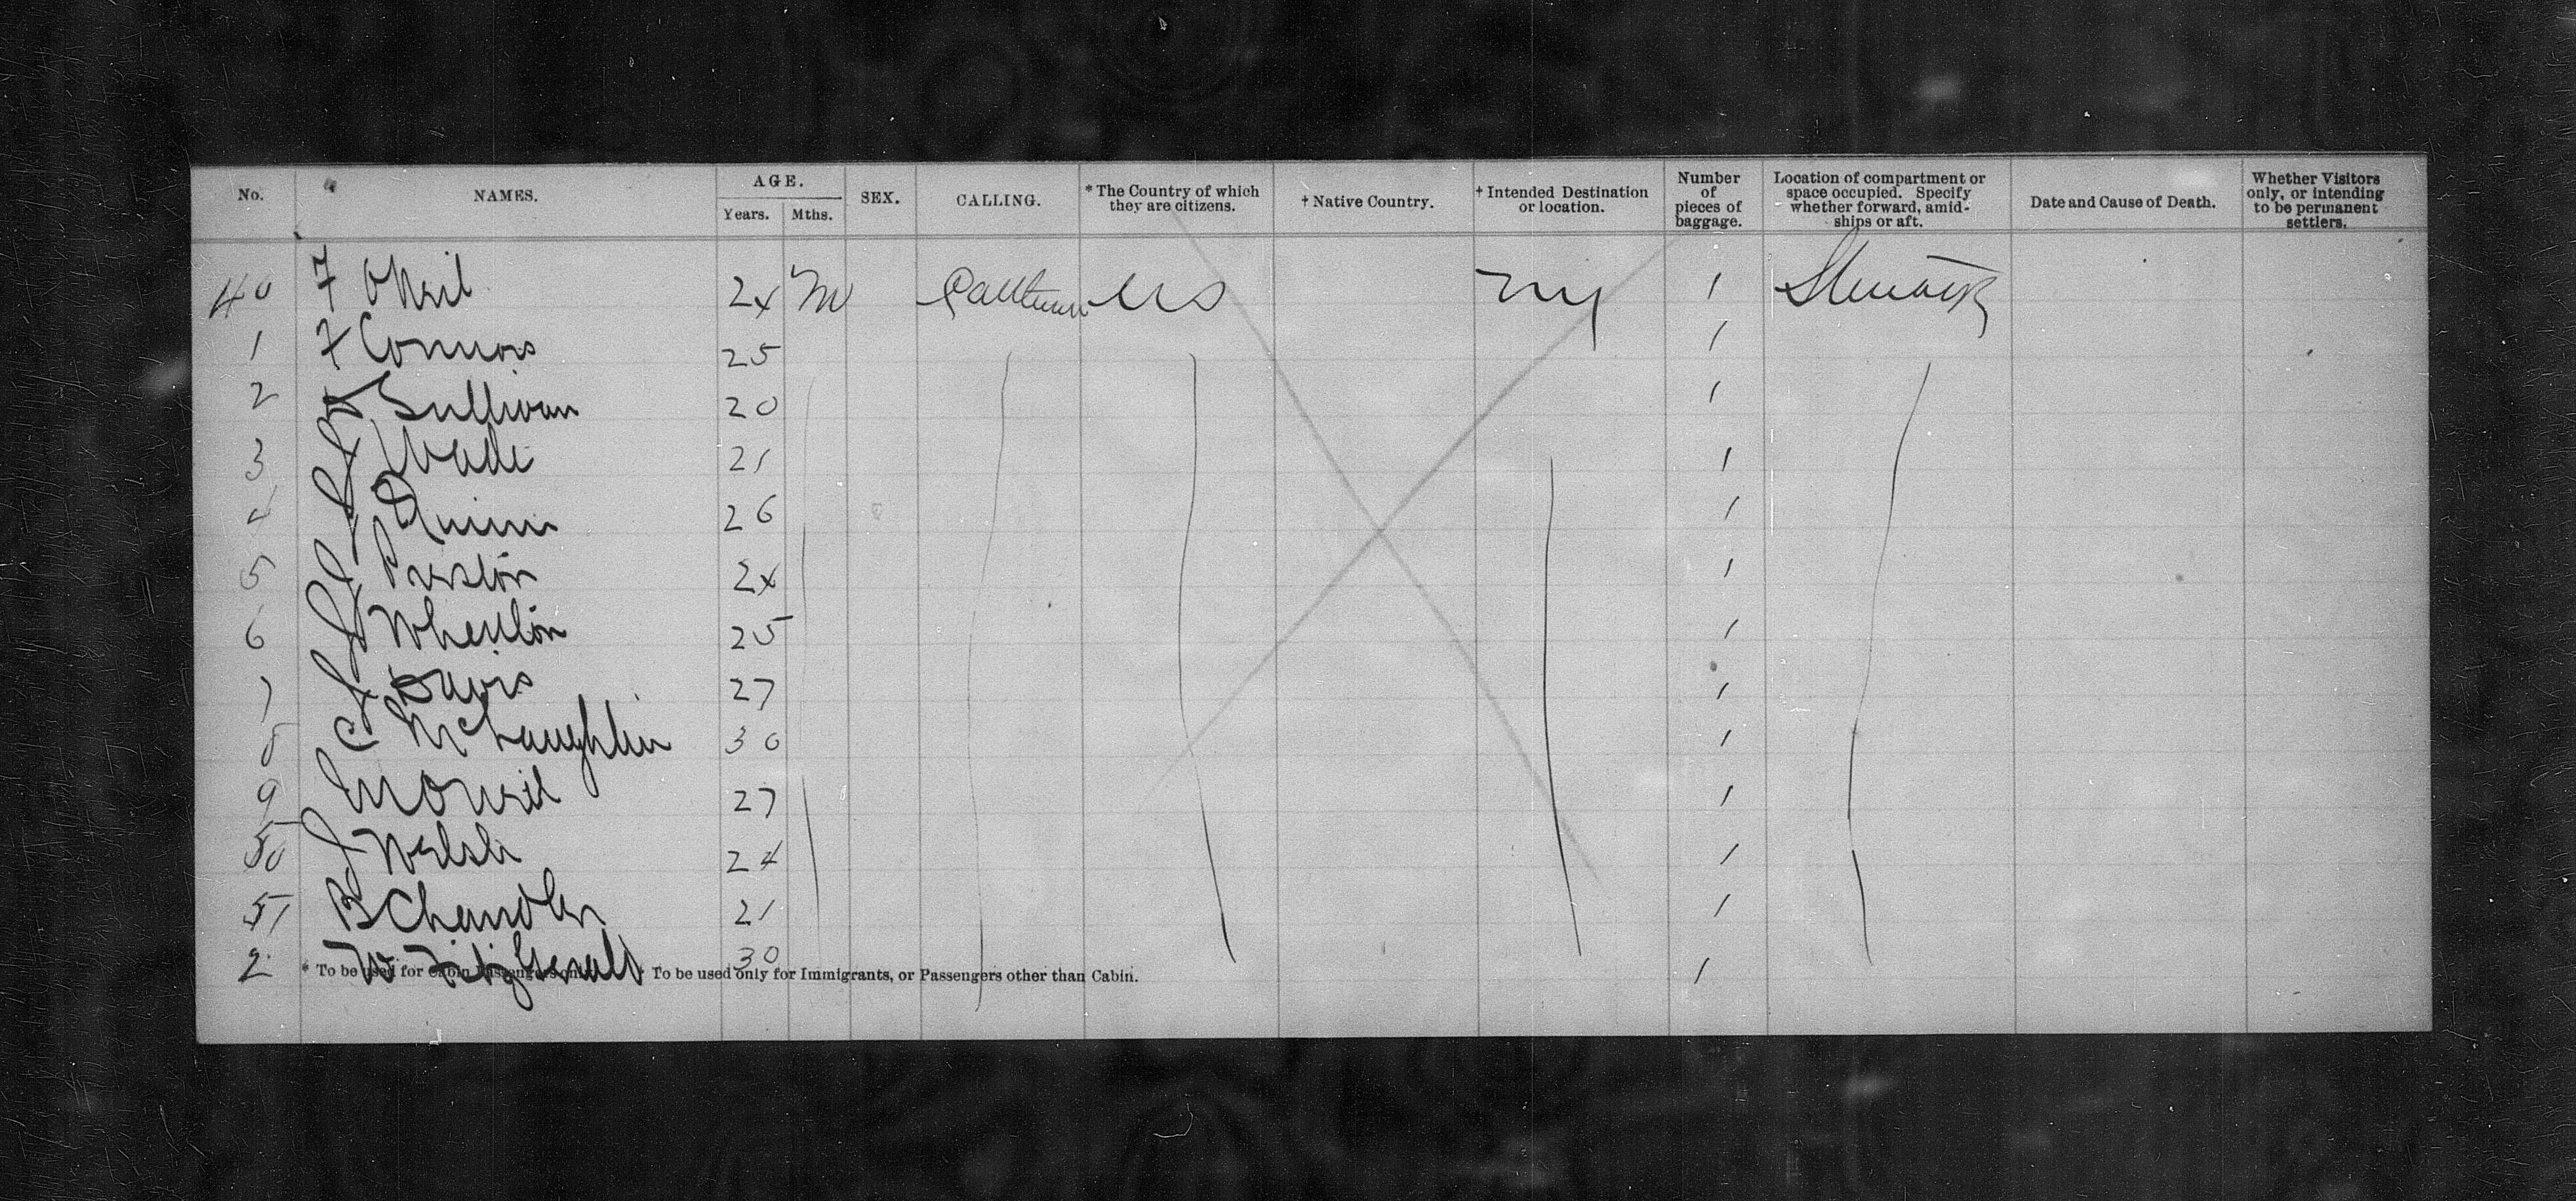 No. NAMES. AGE. Years. Mths. SEX. CALLING. * The Country of which they are citizens. † Native Country. † Intended Destination or location. Number of pieces of baggage. Location of compartment or space occupied. Specify whether forward, amidships or aft. Date and Cause of Death. Whether Visitors only, or intending to be permanent settlers.
40 F ONeil 24 M Cattleman US NY 1
1 F Connors 25 1
2 Sullivan 20 1
3 J Wade 21 1
4 J Quinn 26 1
5 J Preston 24 1
6 J Whenton 25 1
7 J Davis 27 1
8 C McLaughlin 30 1
9 27 1
50 J Welsh 24 1
51 B Chandler 21 1
2 W FitzGerald 30 1
* To be used for Cabin Passengers only. † To be used only for Immigrants, or Passengers other than Cabin.